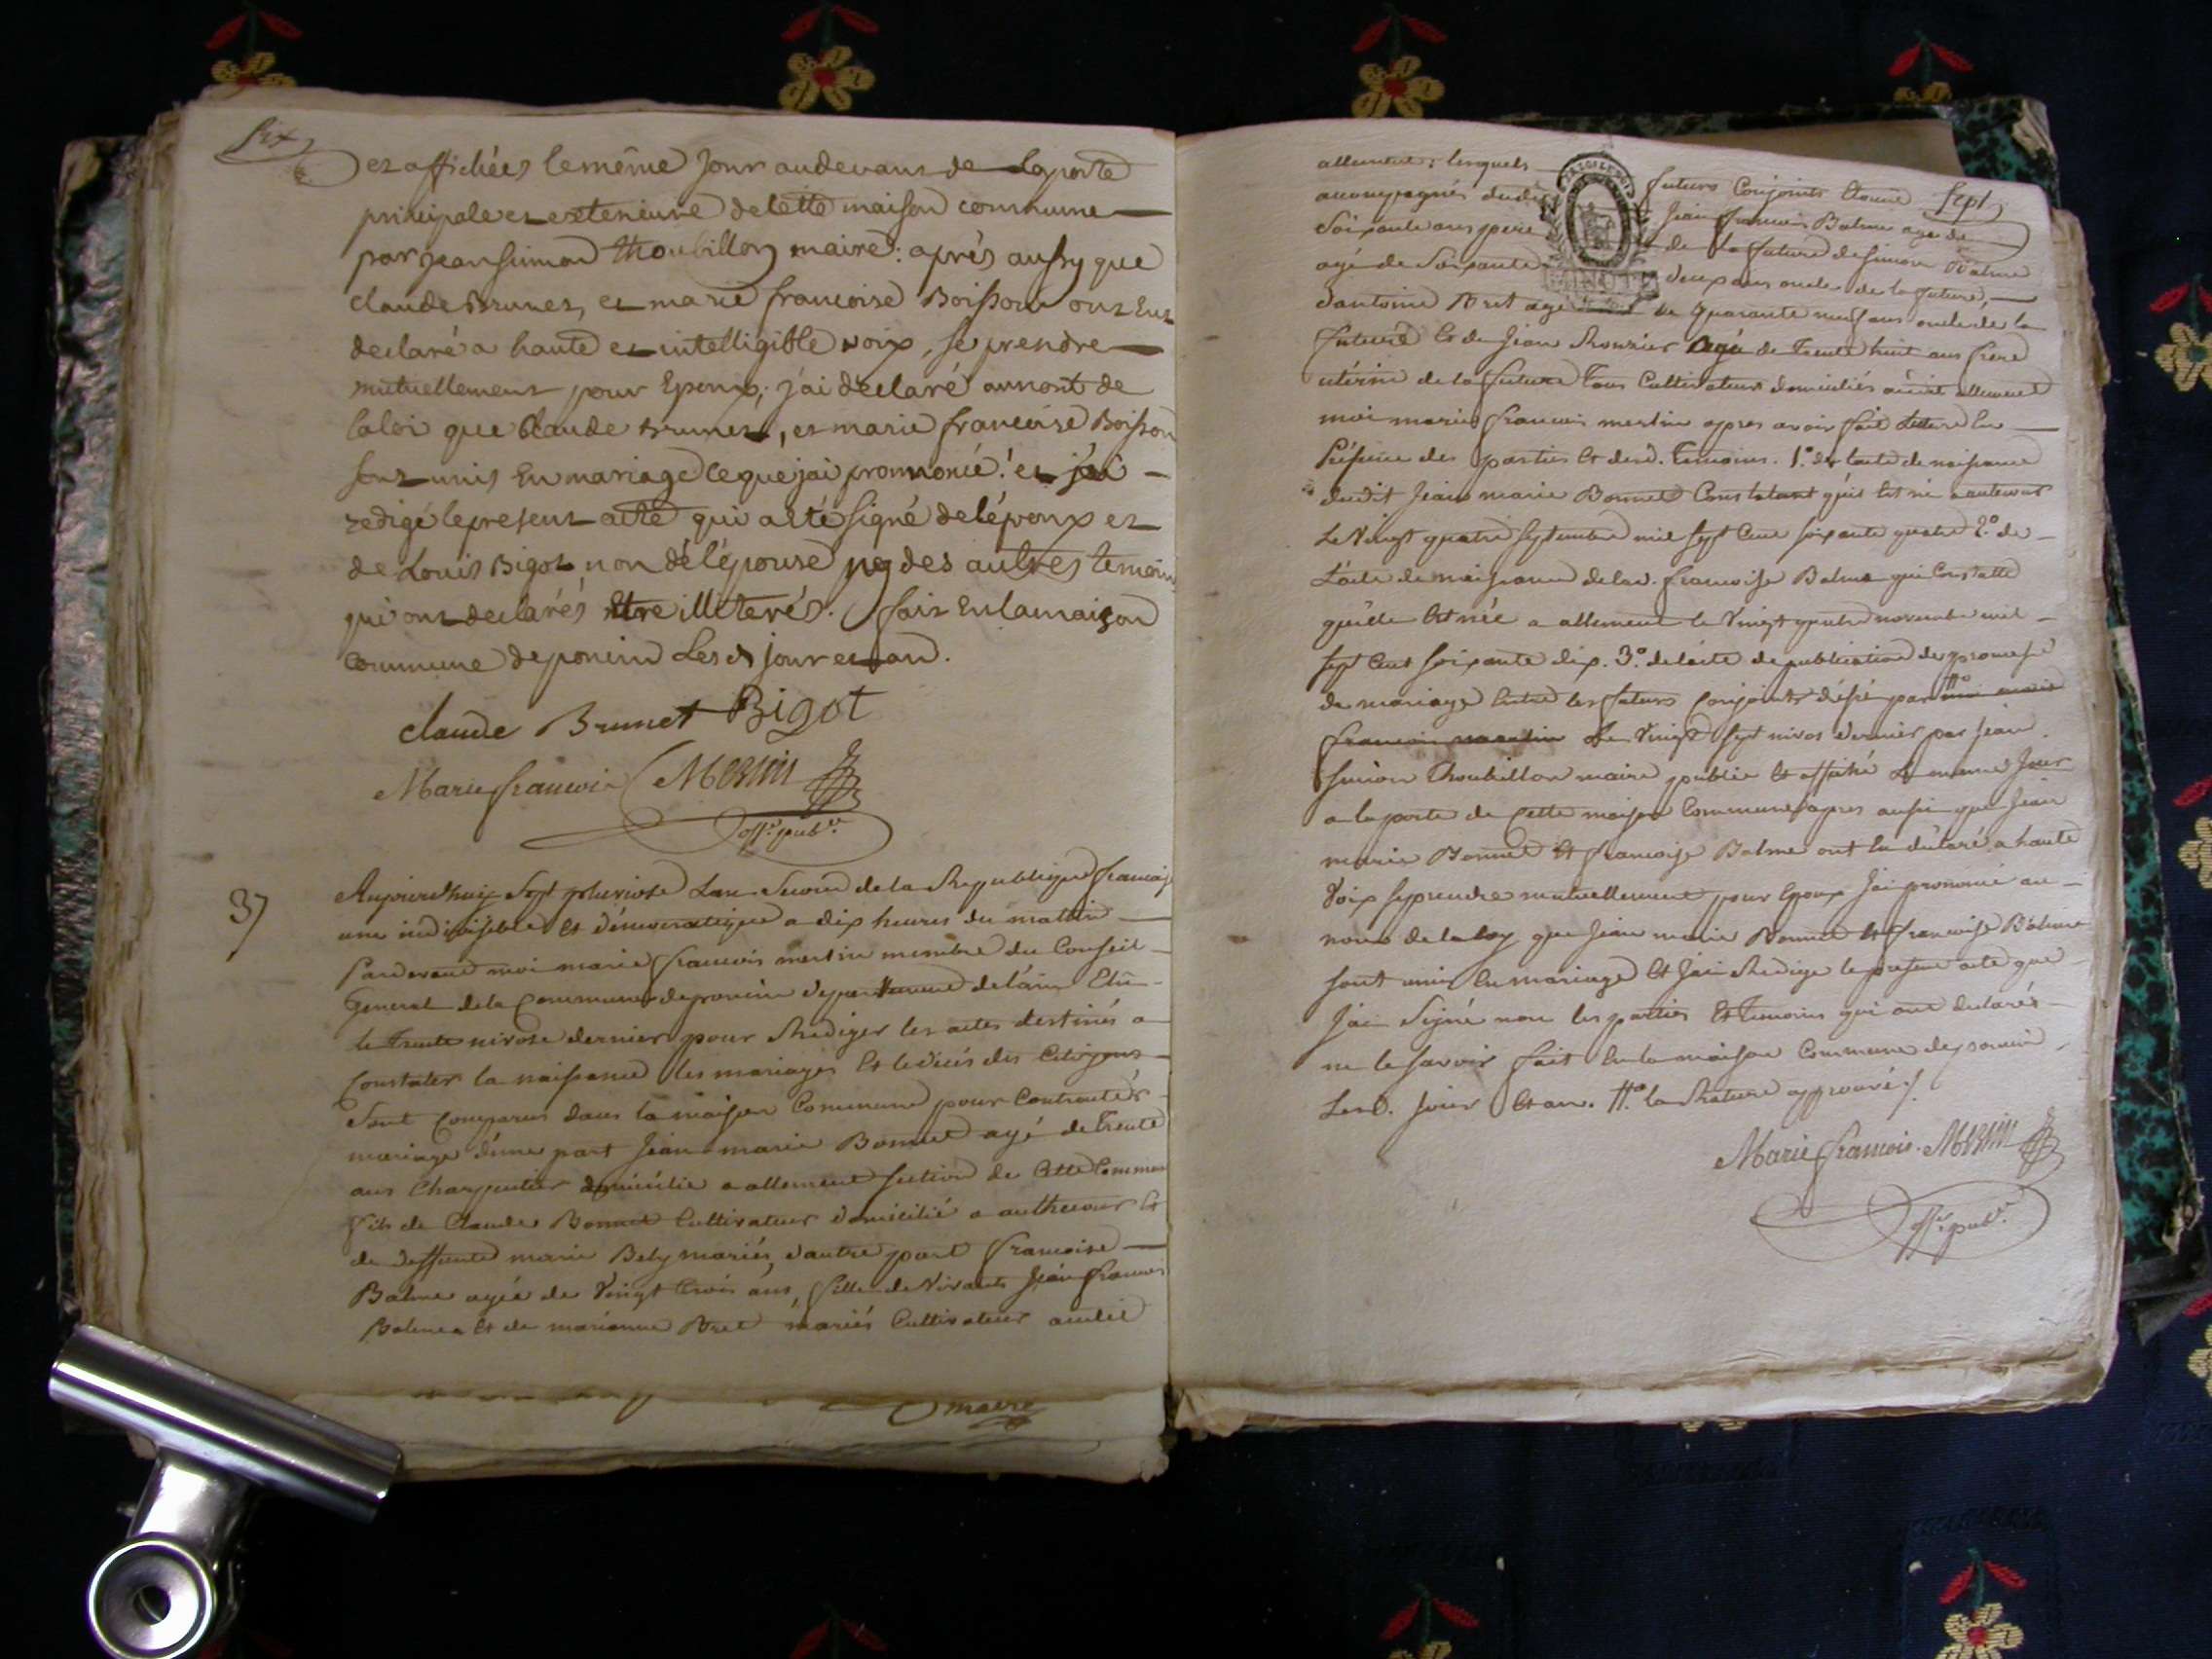 Six
et affichées le même jour audevant de la porte
principale et exterieure de cette maison commune
par jean simon thoubillon maire: aprés aussy que
claude Brunet, et marie francoise Boisson ont Eut
declaré a haute et intelligible voix, se prendre
mutuellement pour Epoux; j'ai déclaré aunont de
laloi que Claude Brunet, et marie francoise Boisson
sont unis En mariage ceque jai prononcé: et jai
redigé lepresent acte qui a eté signé de lépoux et
de Louis Bigot non dé lépouse ny des autres temoins
qui ont declarés Etre illiterés. fait En la maison
commune deponcin Lesd jour et an.
claude Brunet Bigot
Marie francois Merlin
offr. pubr.
37
Aujourdhuy Sept pluviose Lan Second de la Republique francaise
une indivisible Et démocratique a dix heures du mattin
Pardevant moi marie francois merlin membre du Conseil
General dela Commune deponcin departement de l'ain Elu
le Trente nivose dernier pour Rediger les actes destinés a
Constater la naissance les mariages Et ledécés des Citoyens
Sont Comparus dans la maison Commune pour Contracter
mariage d'une part Jean marie Bonnet agé de Trente
ans Charpentier domicilié a allement section de Cette Commune
fils de Claude Bonnet Cultivateur domicilié a authecour Et
de deffunte marie Bely mariés, d'autre part francoise
Balme agée de Vingt trois ans, fille de Vivants Jean francois
Balme Et de marianne Bret mariés Cultivateur audit
Sept
allement; lesquels futurs Conjoints Etoient
accompagnés dudit Jean francois Balme agé de
Soixante ans pere de la future de simon Balme
agé de Soixante deux ans oncle de la future,
MINUTE
d'antoine Bret agé de quarante neuf ans oncle de la
future Et de Jean Rouzier agé de Trente huit ans frere
utérin de la future Tous Cultivateurs domiciliés audit allement
moi marie francois merlin apres avoir fait Lecture En
Présence des parties Et desd. Temoins. 1.° de lacte de naissance
dudit Jean marie Bonnet Constatant qu'il Est né a autecour
Le Vingt quatre Septembre mil sept Cent soixante quatre 2.° de
L'acte de naissance de lad. francoise Balme qui Constatte
qu'elle Est née a allement le Vingt quatre novembre mil
sept Cent soixante dix. 3.° de lacte de publication de promesse
de mariage Entre les futurs Conjoints dressé par moi marie
francois merlin Le Vingt sept nivos dernier par Jean
simon thoubillon maire publié Et affiché Le meme Jour
a la porte de Cette maison Commune apres aussi que Jean
marie Bonnet Et francoise Balme ont Eu déclaré a haute
Voix se prendre mutuellement pour Epoux Jai prononcé au
nom de la loy que Jean marie Bonnet Et francoise Balme
sont unis En mariage Et Jai Redigé le present acte que
Jai Signé non les parties Et Temoins qui ont declarés
ne le savoir fait En la maison Commune deponcin
Lesd. Jour Et an. la Rature approuvé
Marie francois Merlin
offr. pubr.